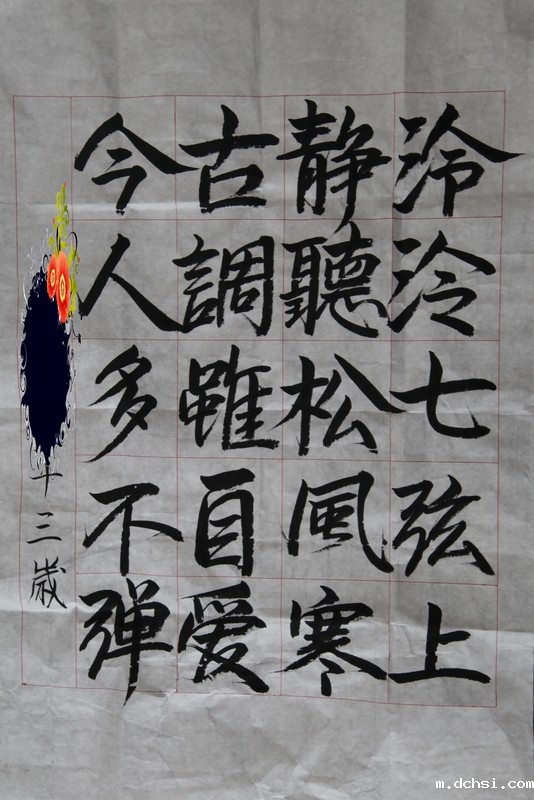 泠泠七弦上
静聽松風寒
古調雖自愛
今人多不彈
十三歲
m.dchsi.com